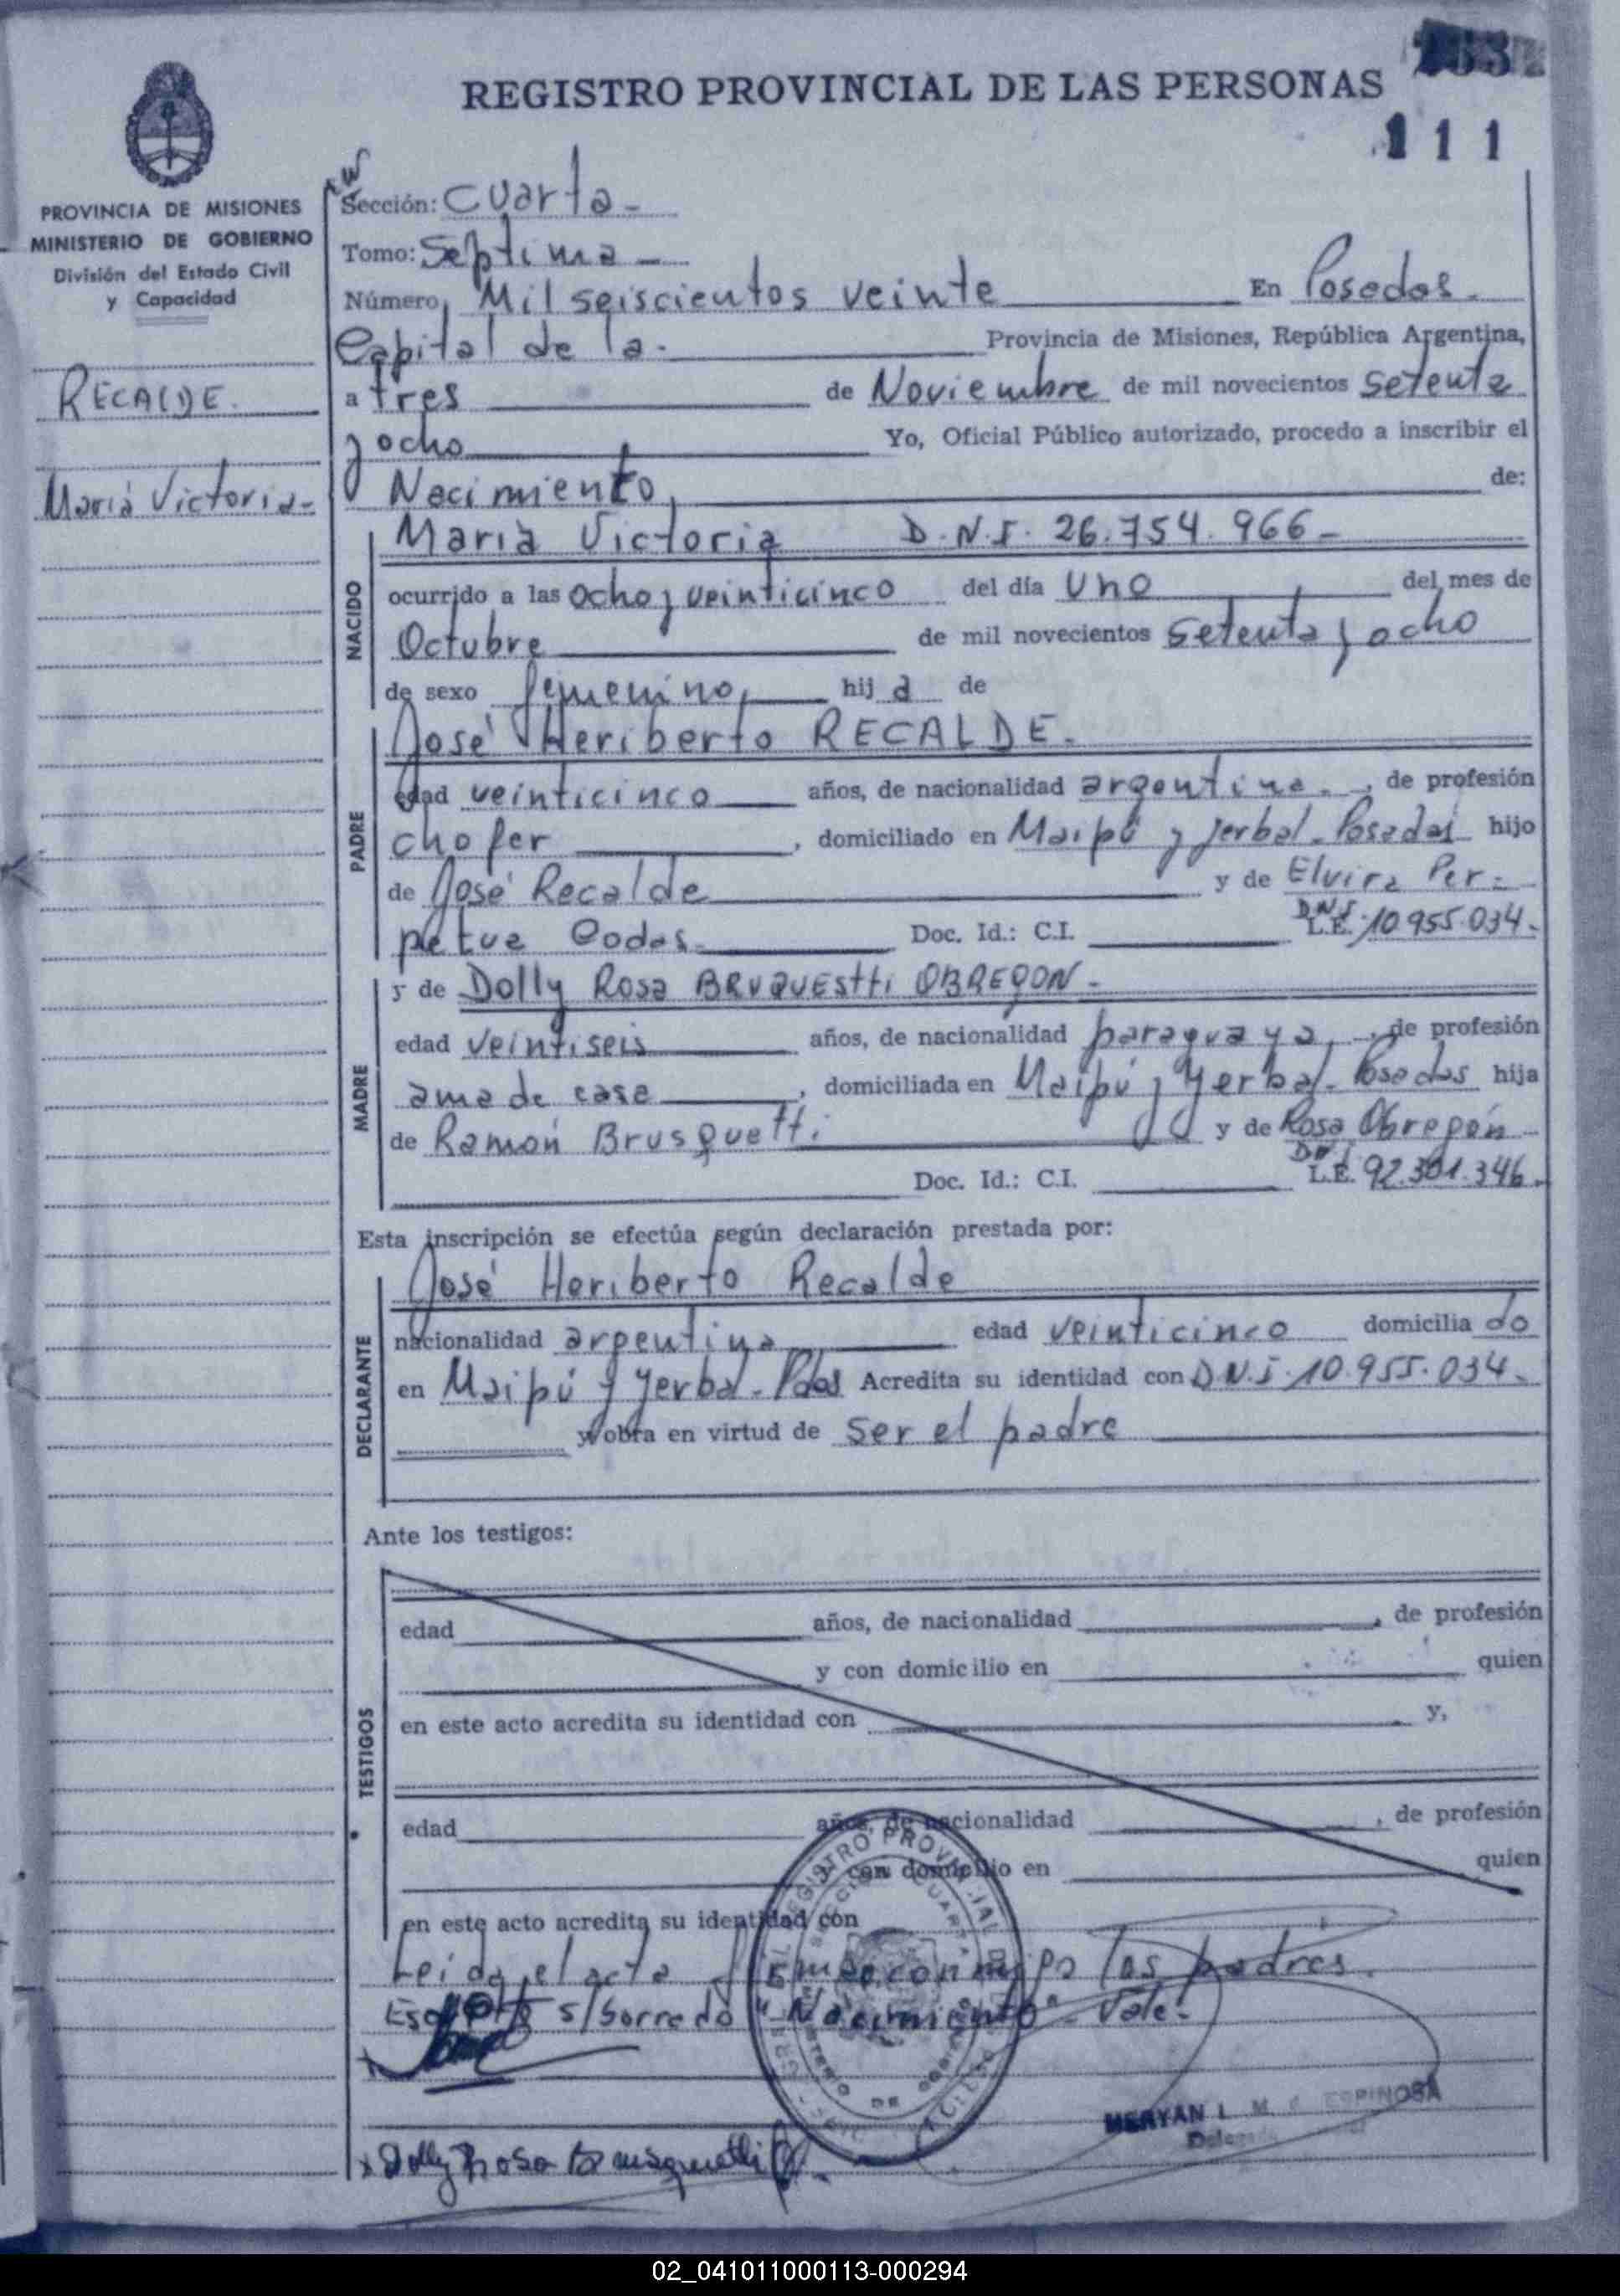 REGISTRO PROVINCIAL DE LAS PERSONAS
111
PROVINCIA DE MISIONES
MINISTERIO DE GOBIERNO
División del Estado Civil
y Capacidad
RECALDE
Marià Victoria-
Sección: Cuarta-
Tomo: Septima-
Número, Mil seiscientos veinte En Posadas.
Capital de la. Provincia de Misiones, República Argentina,
a tres de Noviembre de mil novecientos setenta
y ocho Yo, Oficial Público autorizado, procedo a inscribir el
Nacimiento, de:
NACIDO
Marià Victoria D.N.I. 26.754.966-
ocurrido a las ocho y veinticinco del día Uno del mes de
Octubre de mil novecientos setenta y ocho
de sexo femenino, hija de
PADRE
José Heriberto RECALDE.
edad veinticinco años, de nacionalidad argentina., de profesión
chofer, domiciliado en Maipú y Yerbal-Posadas hijo
de José Recalde y de Elvira Per-
petua Codas. Doc. Id.: C.I. D.N.I. L.E. 10.955.034.
MADRE
y de Dolly Rosa BRUQUEStti OBREGON-
edad veintiseis años, de nacionalidad paraguaya, de profesión
ama de casa, domiciliada en Maipú y Yerbal-Posadas hija
de Ramón Brusquetti y de Rosa Obregón
Doc. Id.: C.I. DNI L.E. 92.301.346.
Esta inscripción se efectúa según declaración prestada por:
DECLARANTE
José Heriberto Recalde
nacionalidad argentina edad veinticinco domiciliado
en Maipú y Yerbal-Pdas Acredita su identidad con D.N.I. 10.955.034.
y obra en virtud de ser el padre
Ante los testigos:
TESTIGOS
edad años, de nacionalidad, de profesión
y con domicilio en quien
en este acto acredita su identidad con y,
edad años, de nacionalidad, de profesión
y con domicilio en quien
en este acto acredita su identidad con
Leida el acta firman conmigo los padres.
Escrito s/borrado "Nacimiento" Vale.
Dolly Rosa Brusquetti
MERYAN L. M. ESPINOSA
02_041011000113-000294